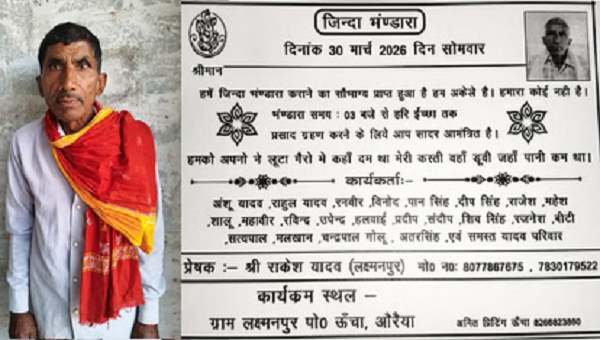 जिन्दा भंण्डारा
दिनांक 30 मार्च 2026 दिन सोमवार
श्रीमान
हमें जिन्दा भंण्डारा कराने का सौभाग्य प्राप्त हुआ है हन अकेले है। हमारा कोई नही है।
भंण्डारा समय : 03 बजे से हरि ईच्छा तक
प्रसाद ग्रहण करने के लिये आप सादर आमंत्रित है।
हमको अपनो ने लूटा गैरो मे कहाँ दम था मेरी कस्ती वहाँ डूवी जहाँ पानी कम था।
कार्यकर्ताः-
अंशू यादव ,राहुल यादव ,रनवीर ,विनोद ,पान सिंह ,दीप सिंह ,राजेश ,महेश
शालू ,महावीर ,रविन्द्र ,उपेन्द्र ,हलवाई ,प्रदीप ,संदीप ,शिव सिंह ,रजनेश ,बीटी
सत्यपाल ,मलखान ,चन्द्रपाल गोलू , अतरसिंह ,एवं समस्त यादव परिवार
प्रेषक :– श्री राकेश यादव (लक्षमनपुर) मो0 न0: 8077867675 , 7830179522
कार्यकम स्थल –
ग्राम लक्षमनपुर पो0 ऊँचा, औरैया
प्रिटिंग ऊँचा 8266823890